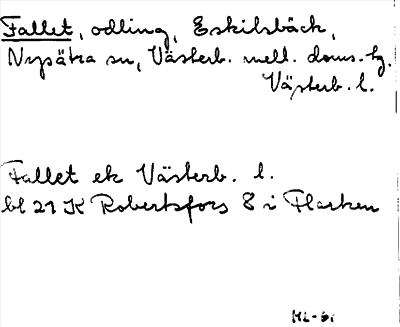 Fallet, odling, Eskilsbäck,
Nysätra sn, Västerb. mell. doms. hg.
Västerb. l.
Fallet ek Västerb. l.
bl 21 K Robertsfors 8 i Flarken